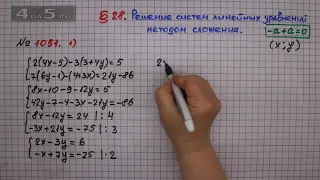 4 п о 5 . r u
§ 28. Решение систем линейных уравнений
методом сложения.
-a+a=0
(x; y)
№ 1051. 1)
2(4x-5)-3(3+4y)=5
7(6y-1)-(4+3x)=21y-86
8x-10-9-12y=5
42y-7-4-3x-21y=-86
8x-12y=24 |:4
-3x+21y=-75 |:3
2x-3y=6
-x+7y=-25 |·2
2x